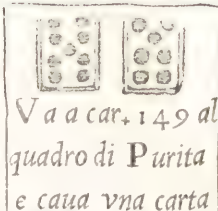 V a a car. 149 al
quadro di Purita
e caua vna carta